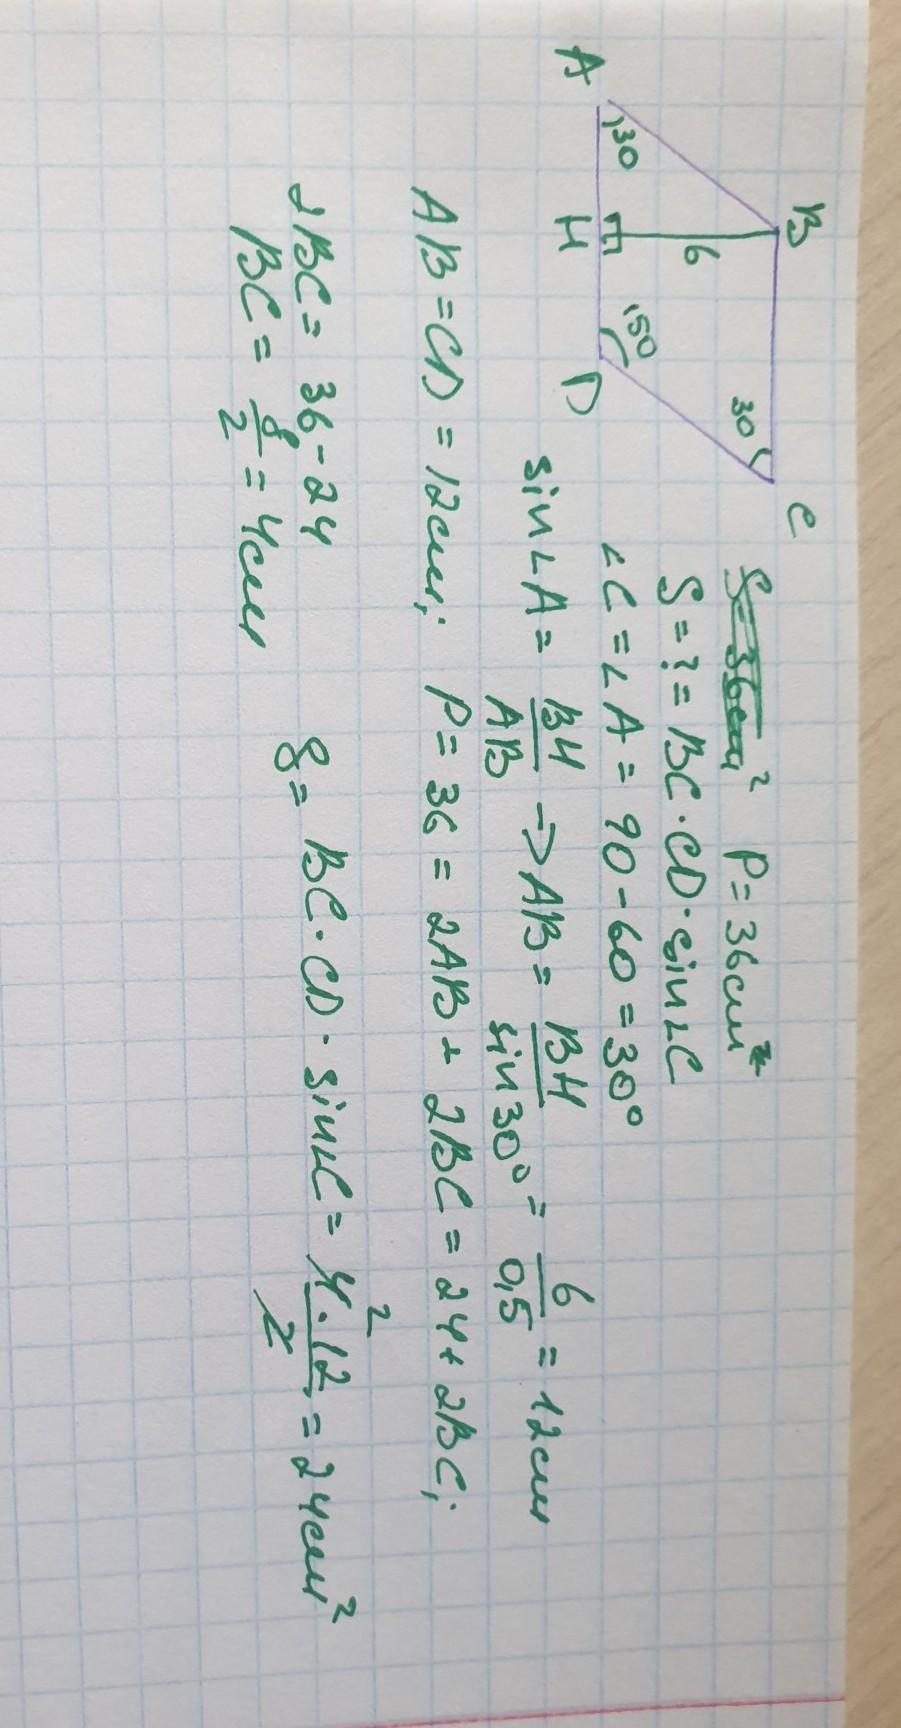 A
B
C
D
H
30
6
150
30
S=36см² P=36см²
S=?=BC·CD·sin∠C
∠C=∠A=90-60=30°
sin∠A= BH/AB → AB= BH/sin30° = 6/0,5 = 12см
AB=CD=12см; P=36=2AB+2BC=24+2BC;
2BC=36-24
BC= 8/2 =4см
S= BC·CD·sin∠C= 4·12/2 =24см²
2